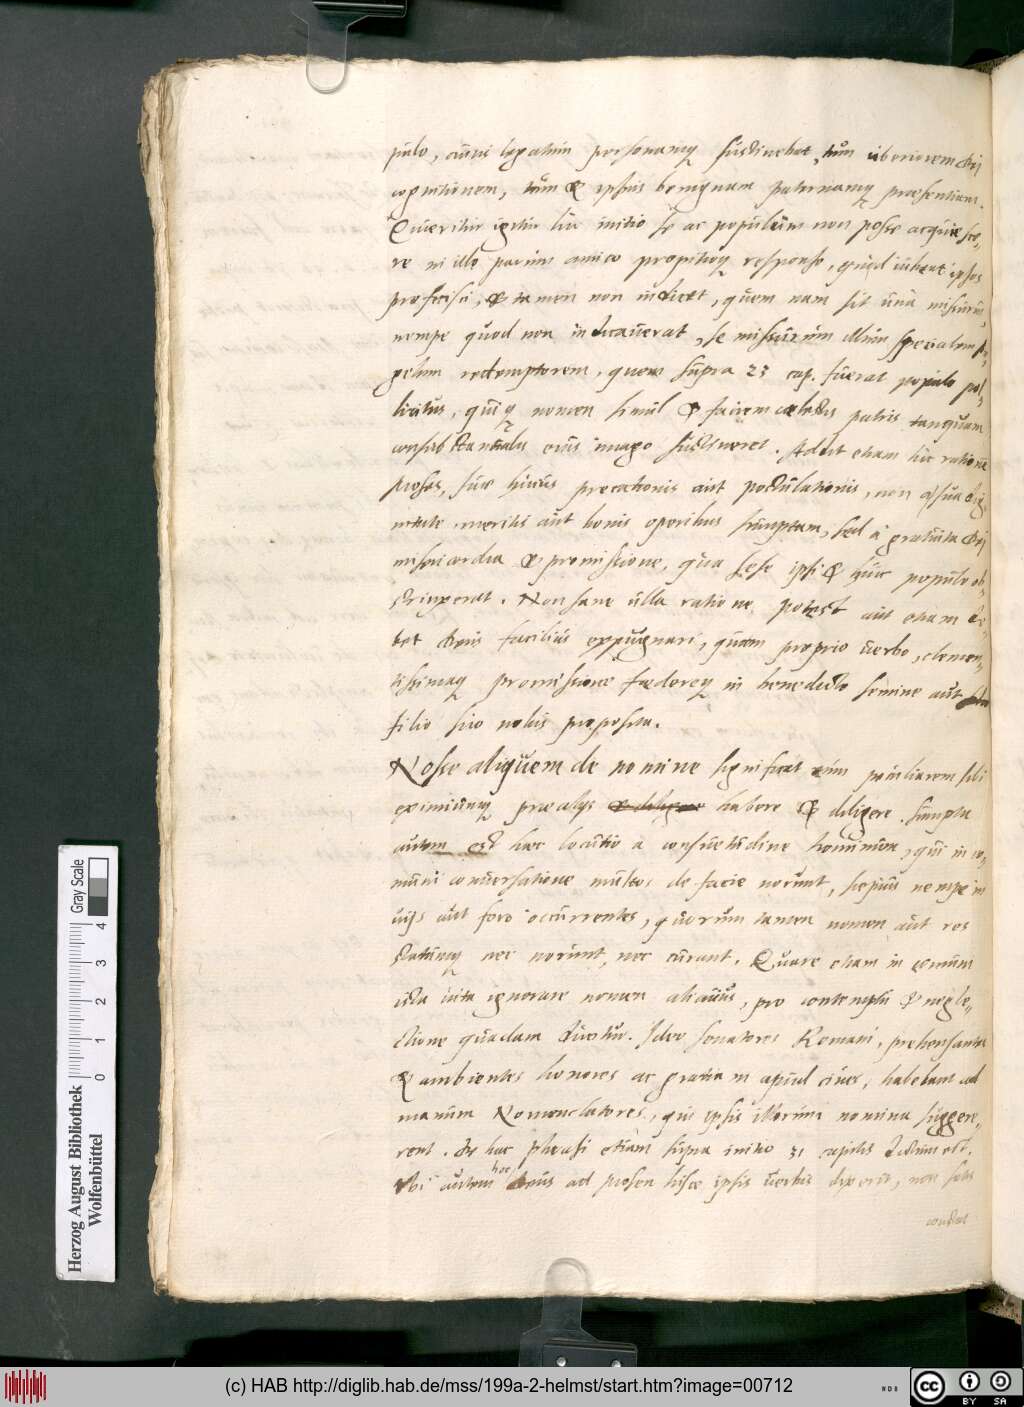 pulo, cuius legatum personamq; sustinebat, tum uberiorem Dei
cognitionem, tum & ipsius benignam paternamq; praesentiam.
Queritur igitur hic initio se ac populum non posse acquiesce,,
re in illo parum amico propitioq; responso, quod iubeat ipsos
proficisci, & tamen non indicet, quem nam sit una missurus,
nempe quod non indicauerat, se missurum illum specialem An,,
gelum redemptorem, quem supra 23 cap. fuerat populo pol,,
licitus, quiq; nomen simul & faciem caelestis patris tanquam
consubstantialis eius imago sustineret. Addit etiam hic rationem
Moses, suae huius precationis aut postulationis, non a sua dig,,
nitate, meritis aut bonis operibus sumptam, sed a gratuita Dei
misericordia & promissione, qua sese ipsi & huic populo ob,,
strinxerat. Non sane ulla ratione potest aut etiam de,,
bet Deus facilius expugnari, quam proprio uerbo, clemen,,
tissimaq; promissione foedereq; in benedicto semine aut
filio suo nobis proposita.
Nosse aliquem de nomine significat eum peculiarem sibi
eximiumq; prae alijs & diligere habere & diligere. Sumpta
autem est haec locutio a consuetudine hominum, qui in co,,
muni conuersatione multos de facie norunt, sepius nempe in
uijs aut foro occurrentes, quorum tamen nomen aut res
statumq; nec norunt, nec curant. Quare etiam in communi
ista uita ignorare nomen alicuius, pro contemptu & negle,,
ctione quadam ducitur. Ideo senatores Romani, prehensantes
& ambientes honores ac gratiam apud ciues, habebant ad
manum Nomenclatores, qui ipsis illorum nomina suggere,,
rent. De hac phrasi etiam supra initio 31 capitis dictum est.
Ubi autem hoc Deus ad Mosen hisce ipsis uerbis dixerit, non satis
constat
Herzog August Bibliothek
Wolfenbüttel
Gray Scale
0 1 2 3 4
(c) HAB http://diglib.hab.de/mss/199a-2-helmst/start.htm?image=00712
cc BY SA